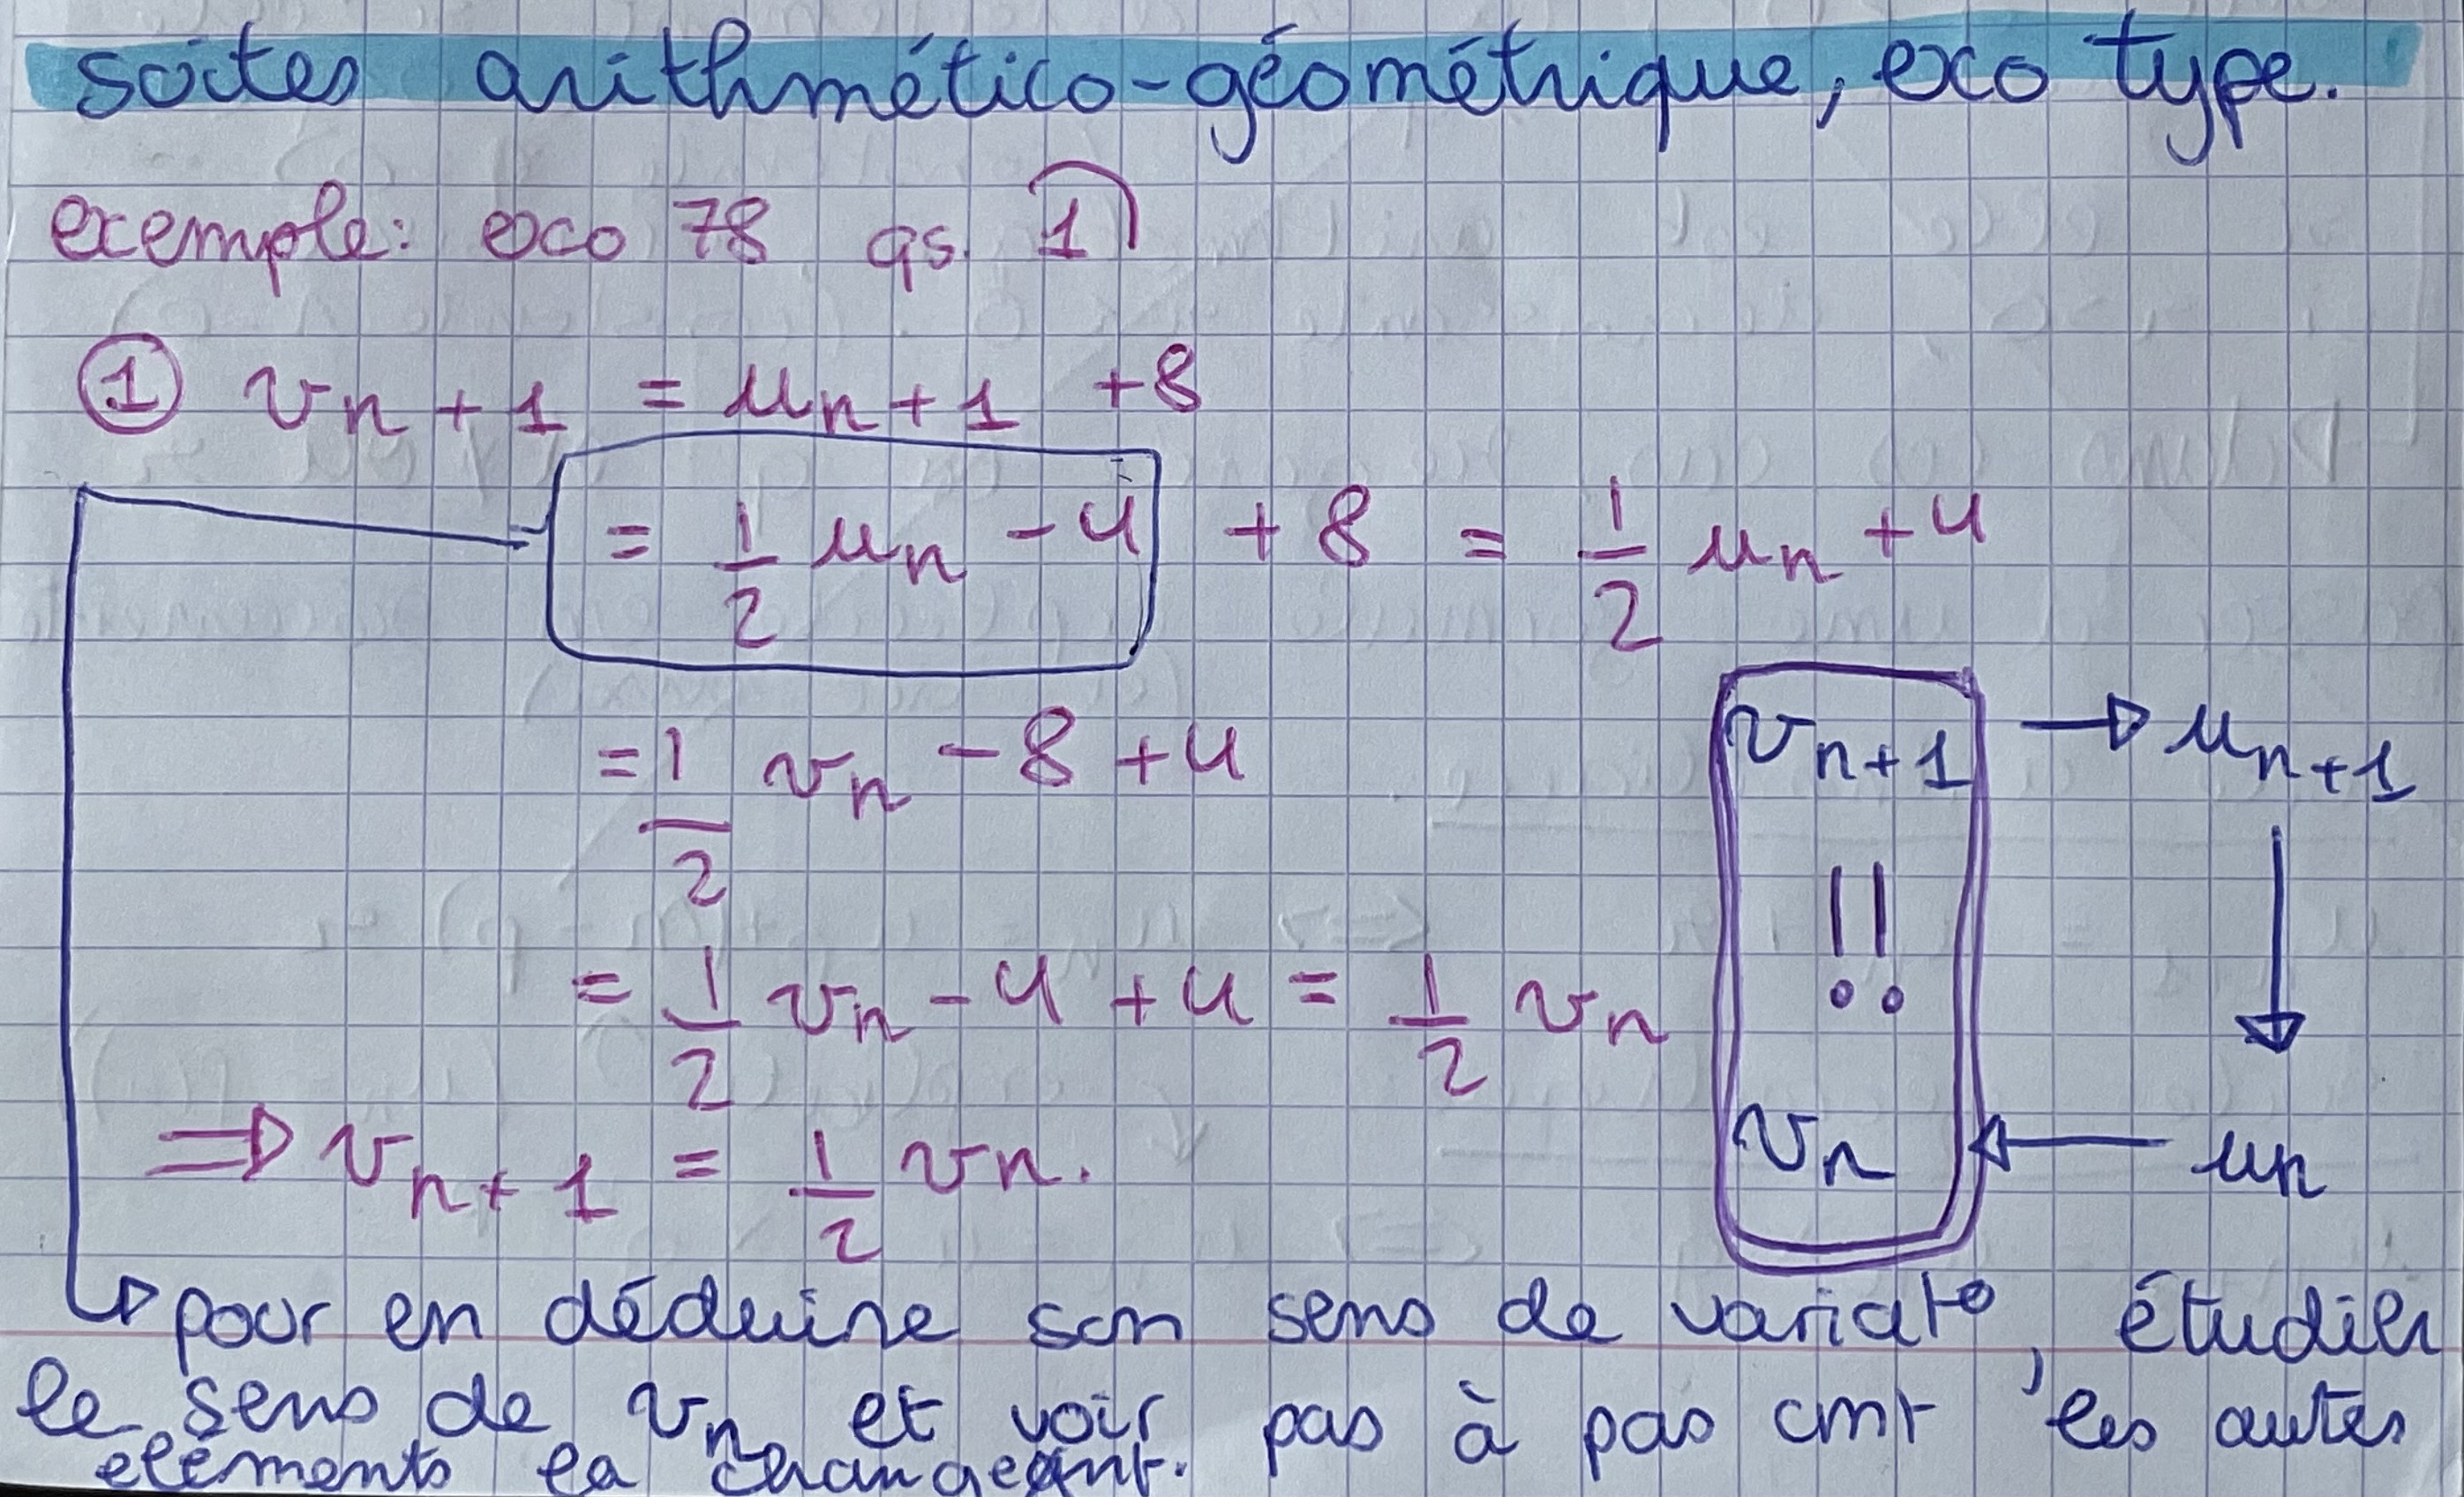 suites arithmético-géométrique, exo type.
exemple: exo 78 qs. 1)
① vn+1 = un+1 +8
= 1/2 un -4 + 8 = 1/2 un +4
= 1/2 vn - 8 + 4
= 1/2 vn - 4 + 4 = 1/2 vn
⇒ vn+1 = 1/2 vn.
vn+1 → un+1
!!
↓
vn ← un
↳ pour en déduire son sens de variat°, étudier
le sens de vn et voir pas à pas cmt les autes
éléments la changeant.